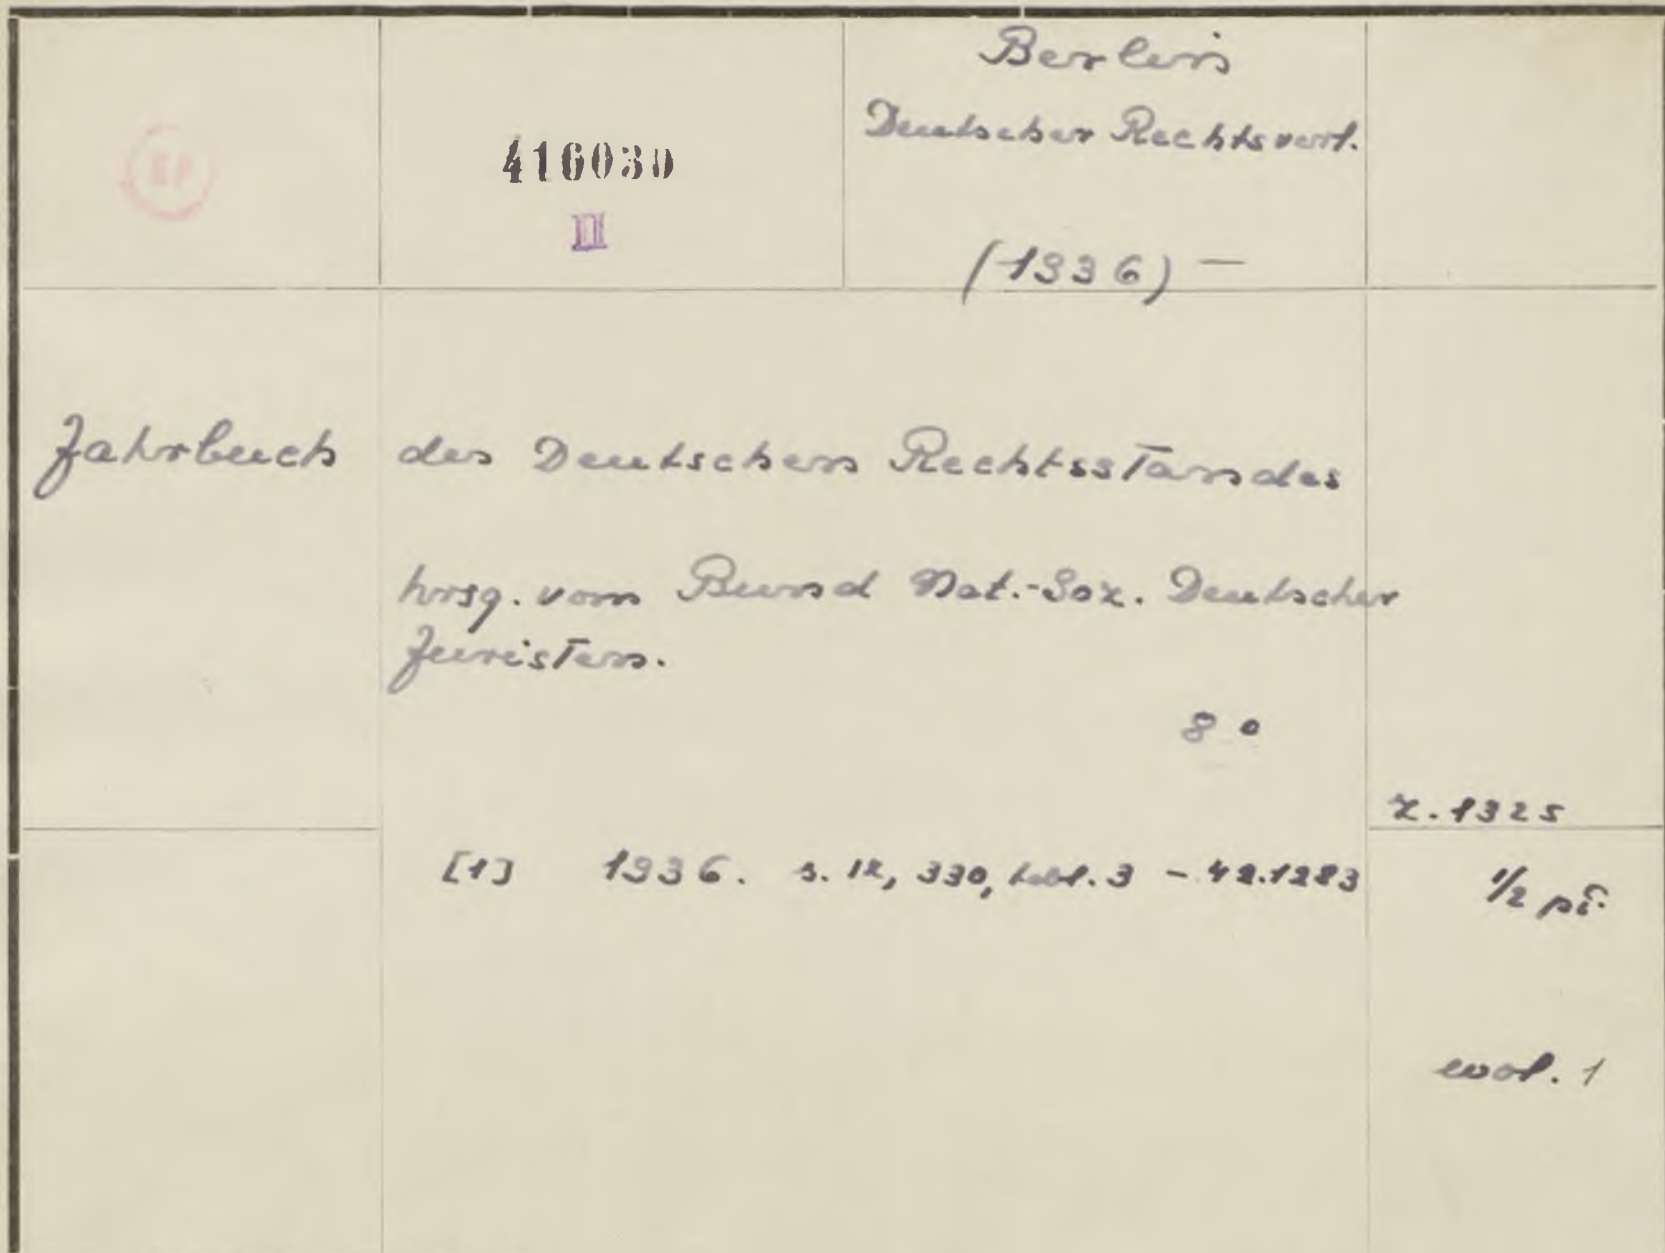 Berlin
Deutscher Rechtsverl.
416030
II
(1936) —
Jahrbuch des Deutschen Rechtsstandes
hrsg. vom Bund Nat.-Soz. Deutscher
Juristen.
8°
z. 1325
[1] 1936. s. IX, 330, tabl. 3 – 42.1283
1/2 pł.
wol. 1